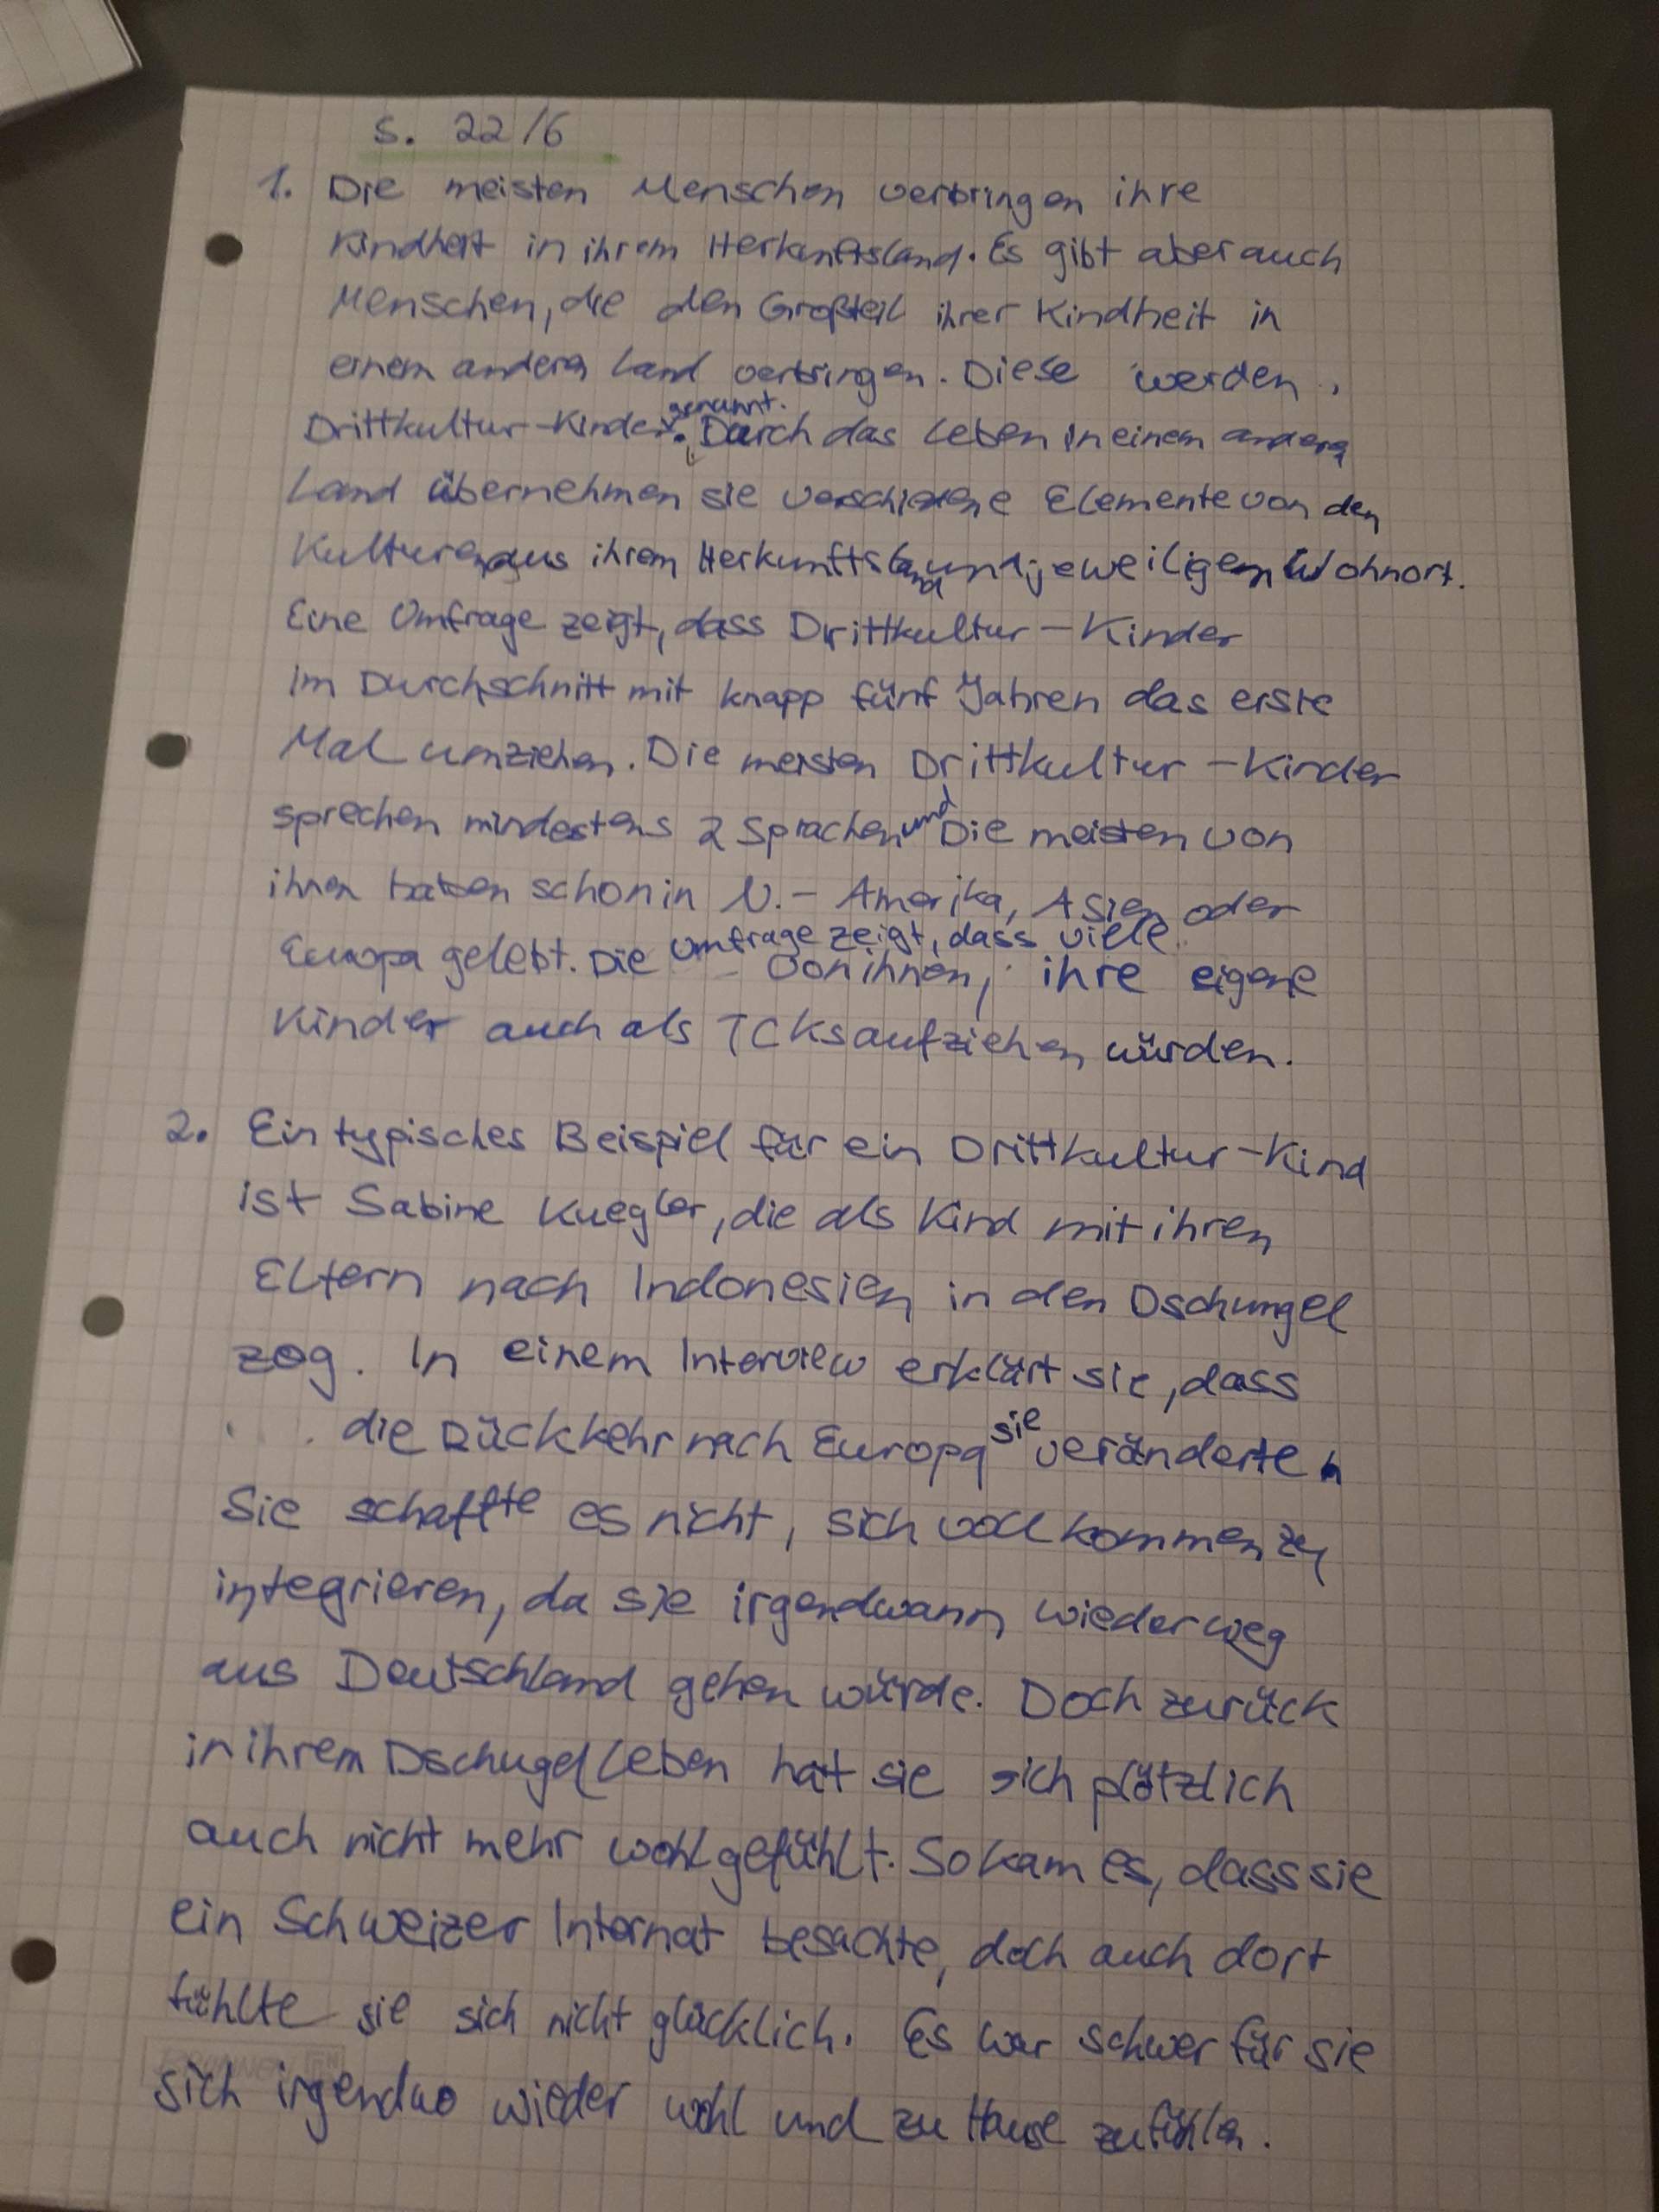 S. 22/6
1. Die meisten Menschen verbringen ihre
Kindheit in ihrem Herkunftsland. Es gibt aber auch
Menschen, die den Großteil ihrer Kindheit in
einem anderen Land verbringen. Diese werden
Drittkultur-Kinder genannt. Durch das Leben in einem anderen
Land übernehmen sie verschiedene Elemente von den
Kulturen aus ihrem Herkunftsland und jeweiligen Wohnort.
Eine Umfrage zeigt, dass Drittkultur-Kinder
im Durchschnitt mit knapp fünf Jahren das erste
Mal umziehen. Die meisten Drittkultur-Kinder
sprechen mindestens 2 Sprachen und Die meisten von
ihnen haben schon in N.-Amerika, Asien oder
Europa gelebt. Die Umfrage zeigt, dass viele von ihnen, ihre eigene
Kinder auch als TCKs aufziehen würden.
2. Ein typisches Beispiel für ein Drittkultur-Kind
ist Sabine Kuegler, die als Kind mit ihren
Eltern nach Indonesien in den Dschungel
zog. In einem Interview erklärt sie, dass
die Rückkehr nach Europa sie veränderte.
Sie schaffte es nicht, sich vollkommen zu
integrieren, da sie irgendwann wieder weg
aus Deutschland gehen würde. Doch zurück
in ihrem Dschugelleben hat sie sich plötzlich
auch nicht mehr wohl gefühlt. So kam es, dass sie
ein Schweizer Internat besuchte, doch auch dort
fühlte sie sich nicht glücklich. Es war schwer für sie
sich irgendwo wieder wohl und zu Hause zu fühlen.